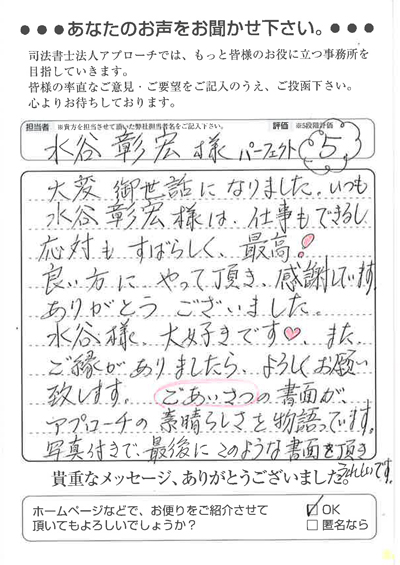 ●●●あなたのお声をお聞かせ下さい。●●●
司法書士法人アプローチでは、もっと皆様のお役に立つ事務所を
目指していきます。
皆様の率直なご意見・ご要望をご記入のうえ、ご投函下さい。
心よりお待ちしております。
担当者 ※貴方を担当させて頂いた弊社担当者名をご記入下さい。 評価 ※5段階評価
水谷彰宏様 パーフェクト 5
大変御世話になりました。いつも
水谷彰宏様は、仕事もできるし
応対もすばらしく、最高!
良い方にやって頂き、感謝しています。
ありがとうございました。
水谷様、大好きです♥、また、
ご縁がありましたら、よろしくお願い
致します。ごあいさつの書面が、
アプローチの素晴らしさを物語っています。
写真付きで、最後にこのような書面を頂き
うれしいです。
貴重なメッセージ、ありがとうございました。
ホームページなどで、お便りをご紹介させて
頂いてもよろしいでしょうか?
☑OK
□匿名なら